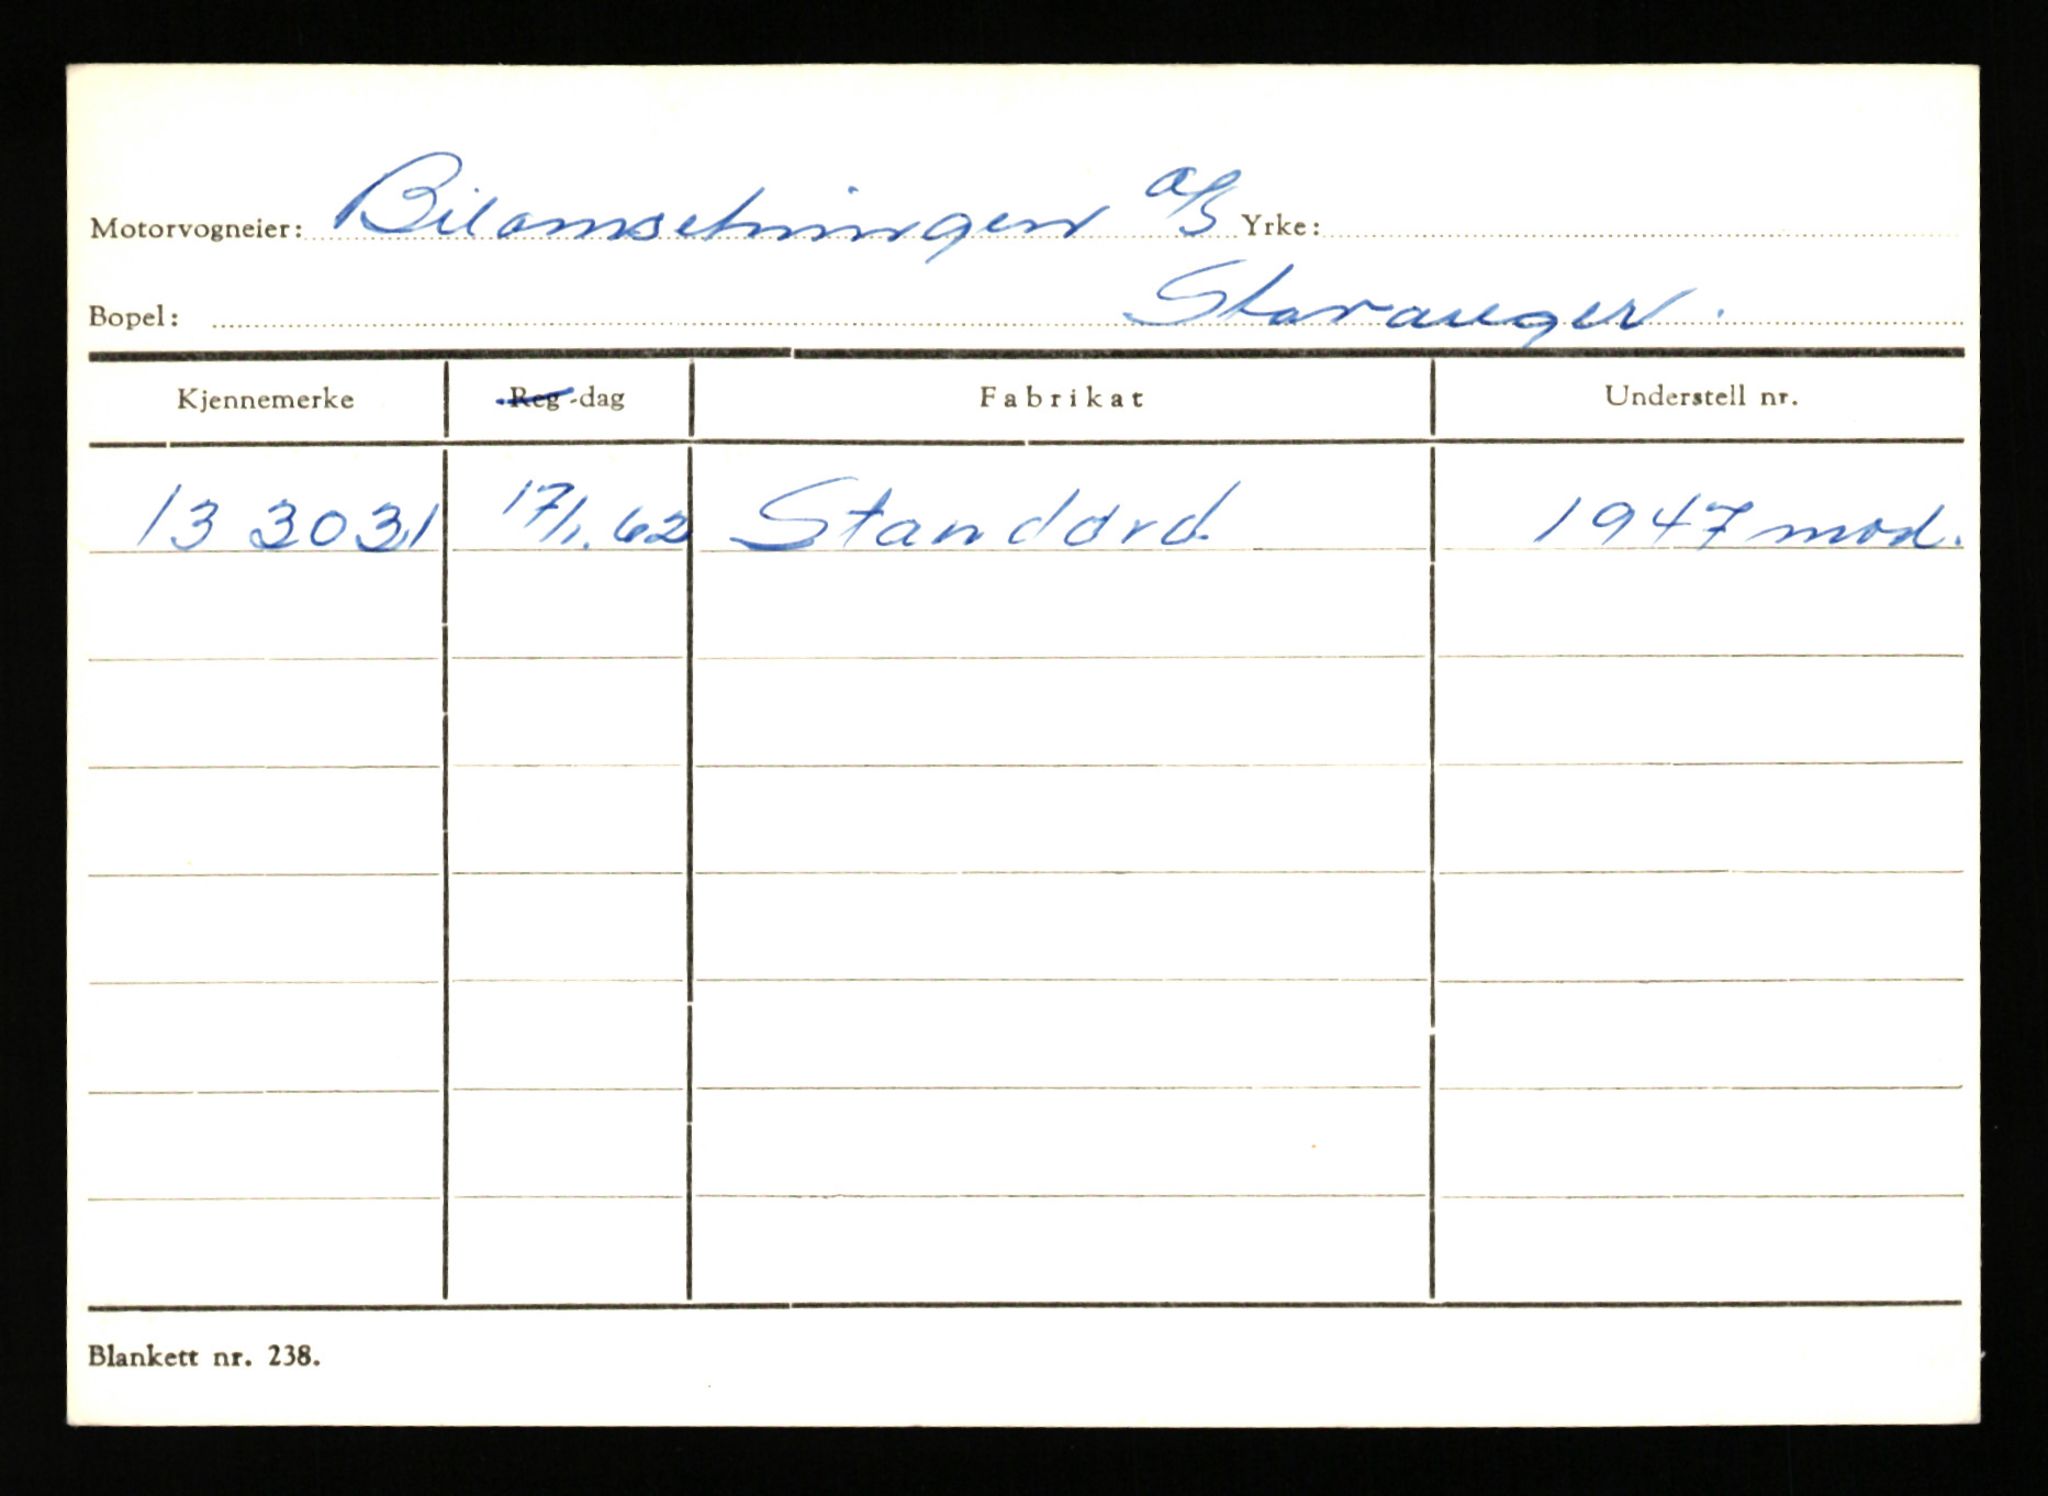 Motorvogneier: Bilomsetningen a/s Yrke:
Bopel: Stavanger.
Kjennemerke Reg.-dag Fabrikat Understell nr.
13 3031 17/1.62 Standard 1947 mod.
Blankett nr. 238.